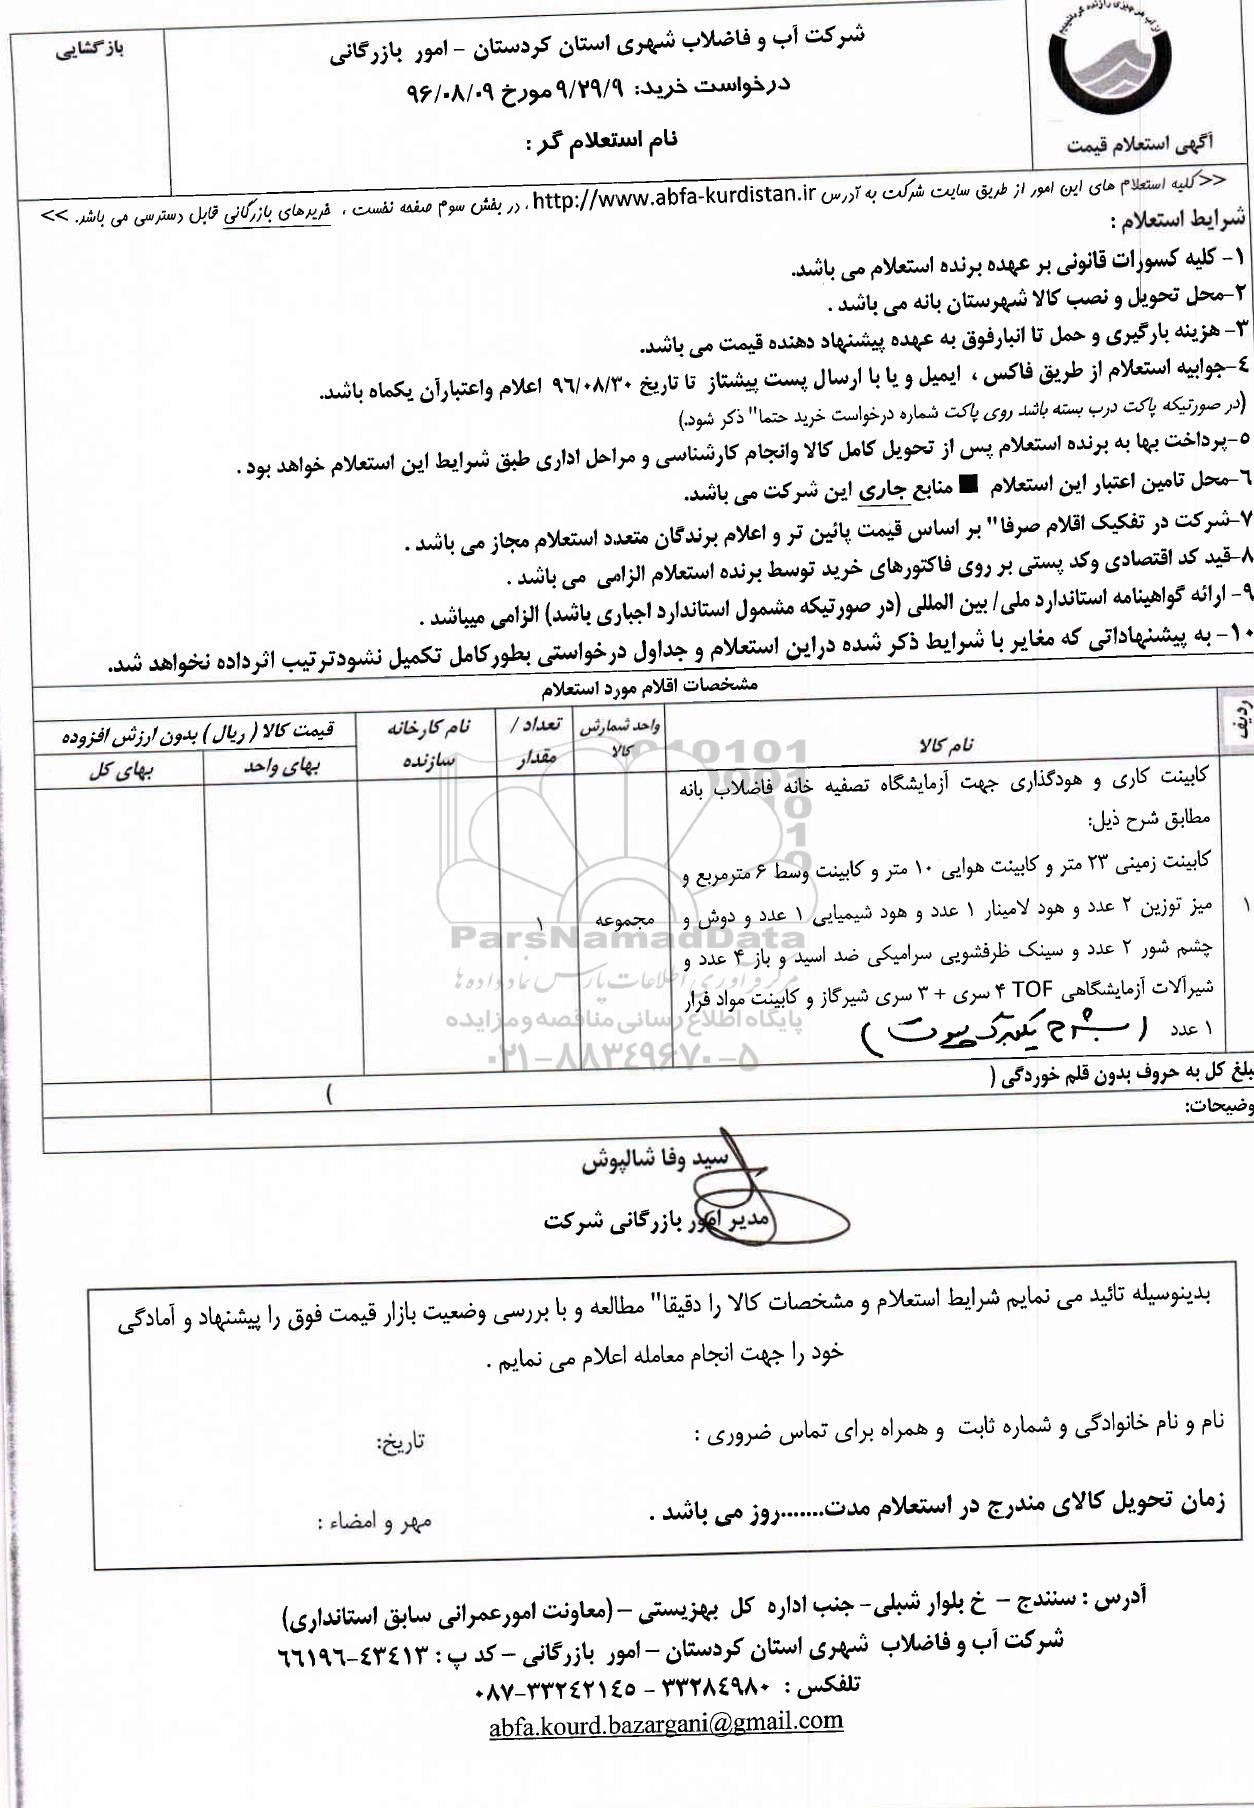 شرکت آب و فاضلاب شهری استان کردستان – امور بازرگانی
درخواست خرید: ۹/۲۹/۹ مورخ ۹۶/۰۸/۰۹
نام استعلام گر :
بازگشایی
آگهی استعلام قیمت
<<کلیه استعلام های این امور از طریق سایت شرکت به آدرس http://www.abfa-kurdistan.ir ، در بخش سوم صفحه نخست ، خریدهای بازرگانی قابل دسترسی می باشد. >>
شرایط استعلام :
۱- کلیه کسورات قانونی بر عهده برنده استعلام می باشد.
۲-محل تحویل و نصب کالا شهرستان بانه می باشد .
۳- هزینه بارگیری و حمل تا انبارفوق به عهده پیشنهاد دهنده قیمت می باشد.
٤-جوابیه استعلام از طریق فاکس ، ایمیل و یا با ارسال پست پیشتاز تا تاریخ ۹٦/۰۸/۳۰ اعلام واعتبارآن یکماه باشد.
(در صورتیکه پاکت درب بسته باشد روی پاکت شماره درخواست خرید حتما" ذکر شود.)
٥-پرداخت بها به برنده استعلام پس از تحویل کامل کالا وانجام کارشناسی و مراحل اداری طبق شرایط این استعلام خواهد بود .
٦-محل تامین اعتبار این استعلام ■ منابع جاری این شرکت می باشد.
۷-شرکت در تفکیک اقلام صرفا" بر اساس قیمت پائین تر و اعلام برندگان متعدد استعلام مجاز می باشد .
۸-قید کد اقتصادی وکد پستی بر روی فاکتورهای خرید توسط برنده استعلام الزامی می باشد .
۹- ارائه گواهینامه استاندارد ملی/ بین المللی (در صورتیکه مشمول استاندارد اجباری باشد) الزامی میباشد .
۱۰- به پیشنهاداتی که مغایر با شرایط ذکر شده دراین استعلام و جداول درخواستی بطورکامل تکمیل نشودترتیب اثرداده نخواهد شد.
مشخصات اقلام مورد استعلام
ردیف
نام کالا
واحد شمارش کالا
تعداد / مقدار
نام کارخانه سازنده
قیمت کالا ( ریال ) بدون ارزش افزوده
بهای واحد
بهای کل
۱
کابینت کاری و هودگذاری جهت آزمایشگاه تصفیه خانه فاضلاب بانه
مطابق شرح ذیل:
کابینت زمینی ۲۳ متر و کابینت هوایی ۱۰ متر و کابینت وسط ۶ مترمربع و
میز توزین ۲ عدد و هود لامینار ۱ عدد و هود شیمیایی ۱ عدد و دوش و
چشم شور ۲ عدد و سینک ظرفشویی سرامیکی ضد اسید و باز ۴ عدد و
شیرآلات آزمایشگاهی TOF ۴ سری + ۳ سری شیرگاز و کابینت مواد فرار
۱ عدد (بشرح یکبرگ پیوست)
مجموعه
۱
ParsNamadData
مرکز فرآوری اطلاعات پارس نماد داده ها
پایگاه اطلاع رسانی مناقصه و مزایده
۰۲۱-۸۸۳۴۹۶۷۰-۵
بلغ کل به حروف بدون قلم خوردگی ( )
وضیحات:
سید وفا شالپوش
مدیر امور بازرگانی شرکت
بدینوسیله تائید می نمایم شرایط استعلام و مشخصات کالا را دقیقا" مطالعه و با بررسی وضعیت بازار قیمت فوق را پیشنهاد و آمادگی
خود را جهت انجام معامله اعلام می نمایم .
نام و نام خانوادگی و شماره ثابت و همراه برای تماس ضروری :
تاریخ:
زمان تحویل کالای مندرج در استعلام مدت.......روز می باشد .
مهر و امضاء :
آدرس : سنندج – خ بلوار شبلی- جنب اداره کل بهزیستی – (معاونت امورعمرانی سابق استانداری)
شرکت آب و فاضلاب شهری استان کردستان – امور بازرگانی – کد پ : ٤۳٤۱۳-٦٦۱۹٦
تلفکس : ۳۳۲۸٤۹۸۰ - ۳۳۲٤۲۱٤٥-۰۸۷
abfa.kourd.bazargani@gmail.com